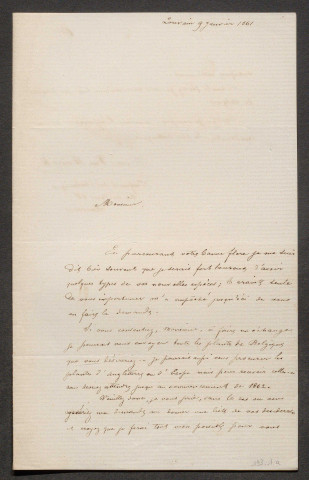 Louvain 9 janvier 1861
Monsieur
En parcourant votre bonne flore, je me suis
dit bien souvent que je serais fort heureux d'avoir
quelques types de vos nouvelles espèces; la crainte seule
de vous importuner m'a empêché jusqu'ici de vous
en faire la demande.
Si vous consentez, Monsieur, à faire un échange
je pourrai vous envoyer toutes les plantes de Belgique
que vous désirerez. je pourrai aussi vous procurer les
plantes d'Angleterre et
jusqu'au commencement de 1862.
Veuillez donc, je vous prie, dans le cas où vous
une liste de vos desiderata
et croyez que je ferai tout mon possible pour vous